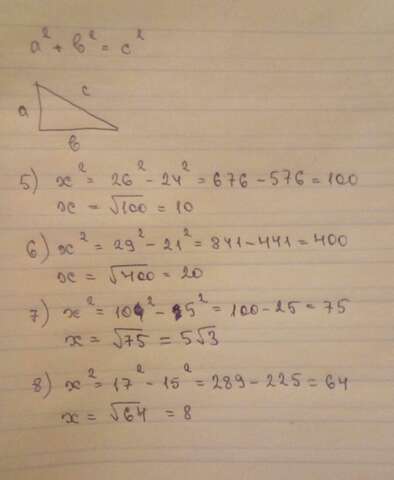 a² + b² = c²
a
c
b
5) x² = 26² - 24² = 676 - 576 = 100
x = √100 = 10
6) x² = 29² - 21² = 841 - 441 = 400
x = √400 = 20
7) x² = 10² - 5² = 100 - 25 = 75
x = √75 = 5√3
8) x² = 17² - 15² = 289 - 225 = 64
x = √64 = 8